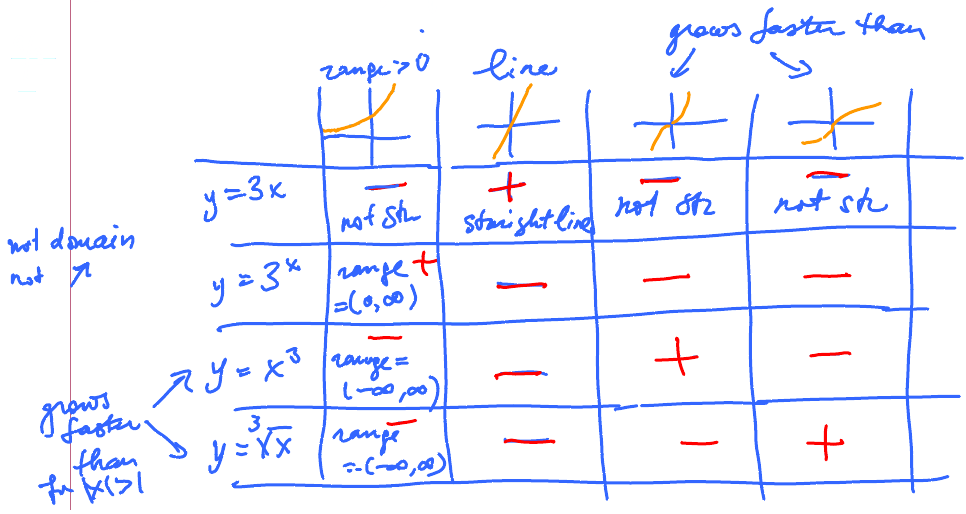 grows faster than
range > 0
line
y = 3x
not str
straight line
not str
not str
not domain
not ↗
y = 3^x
range +
= (0, ∞)
y = x³
range =
(-∞, ∞)
grows
faster
than
for |x| > 1
y = ³√x
range
= (-∞, ∞)